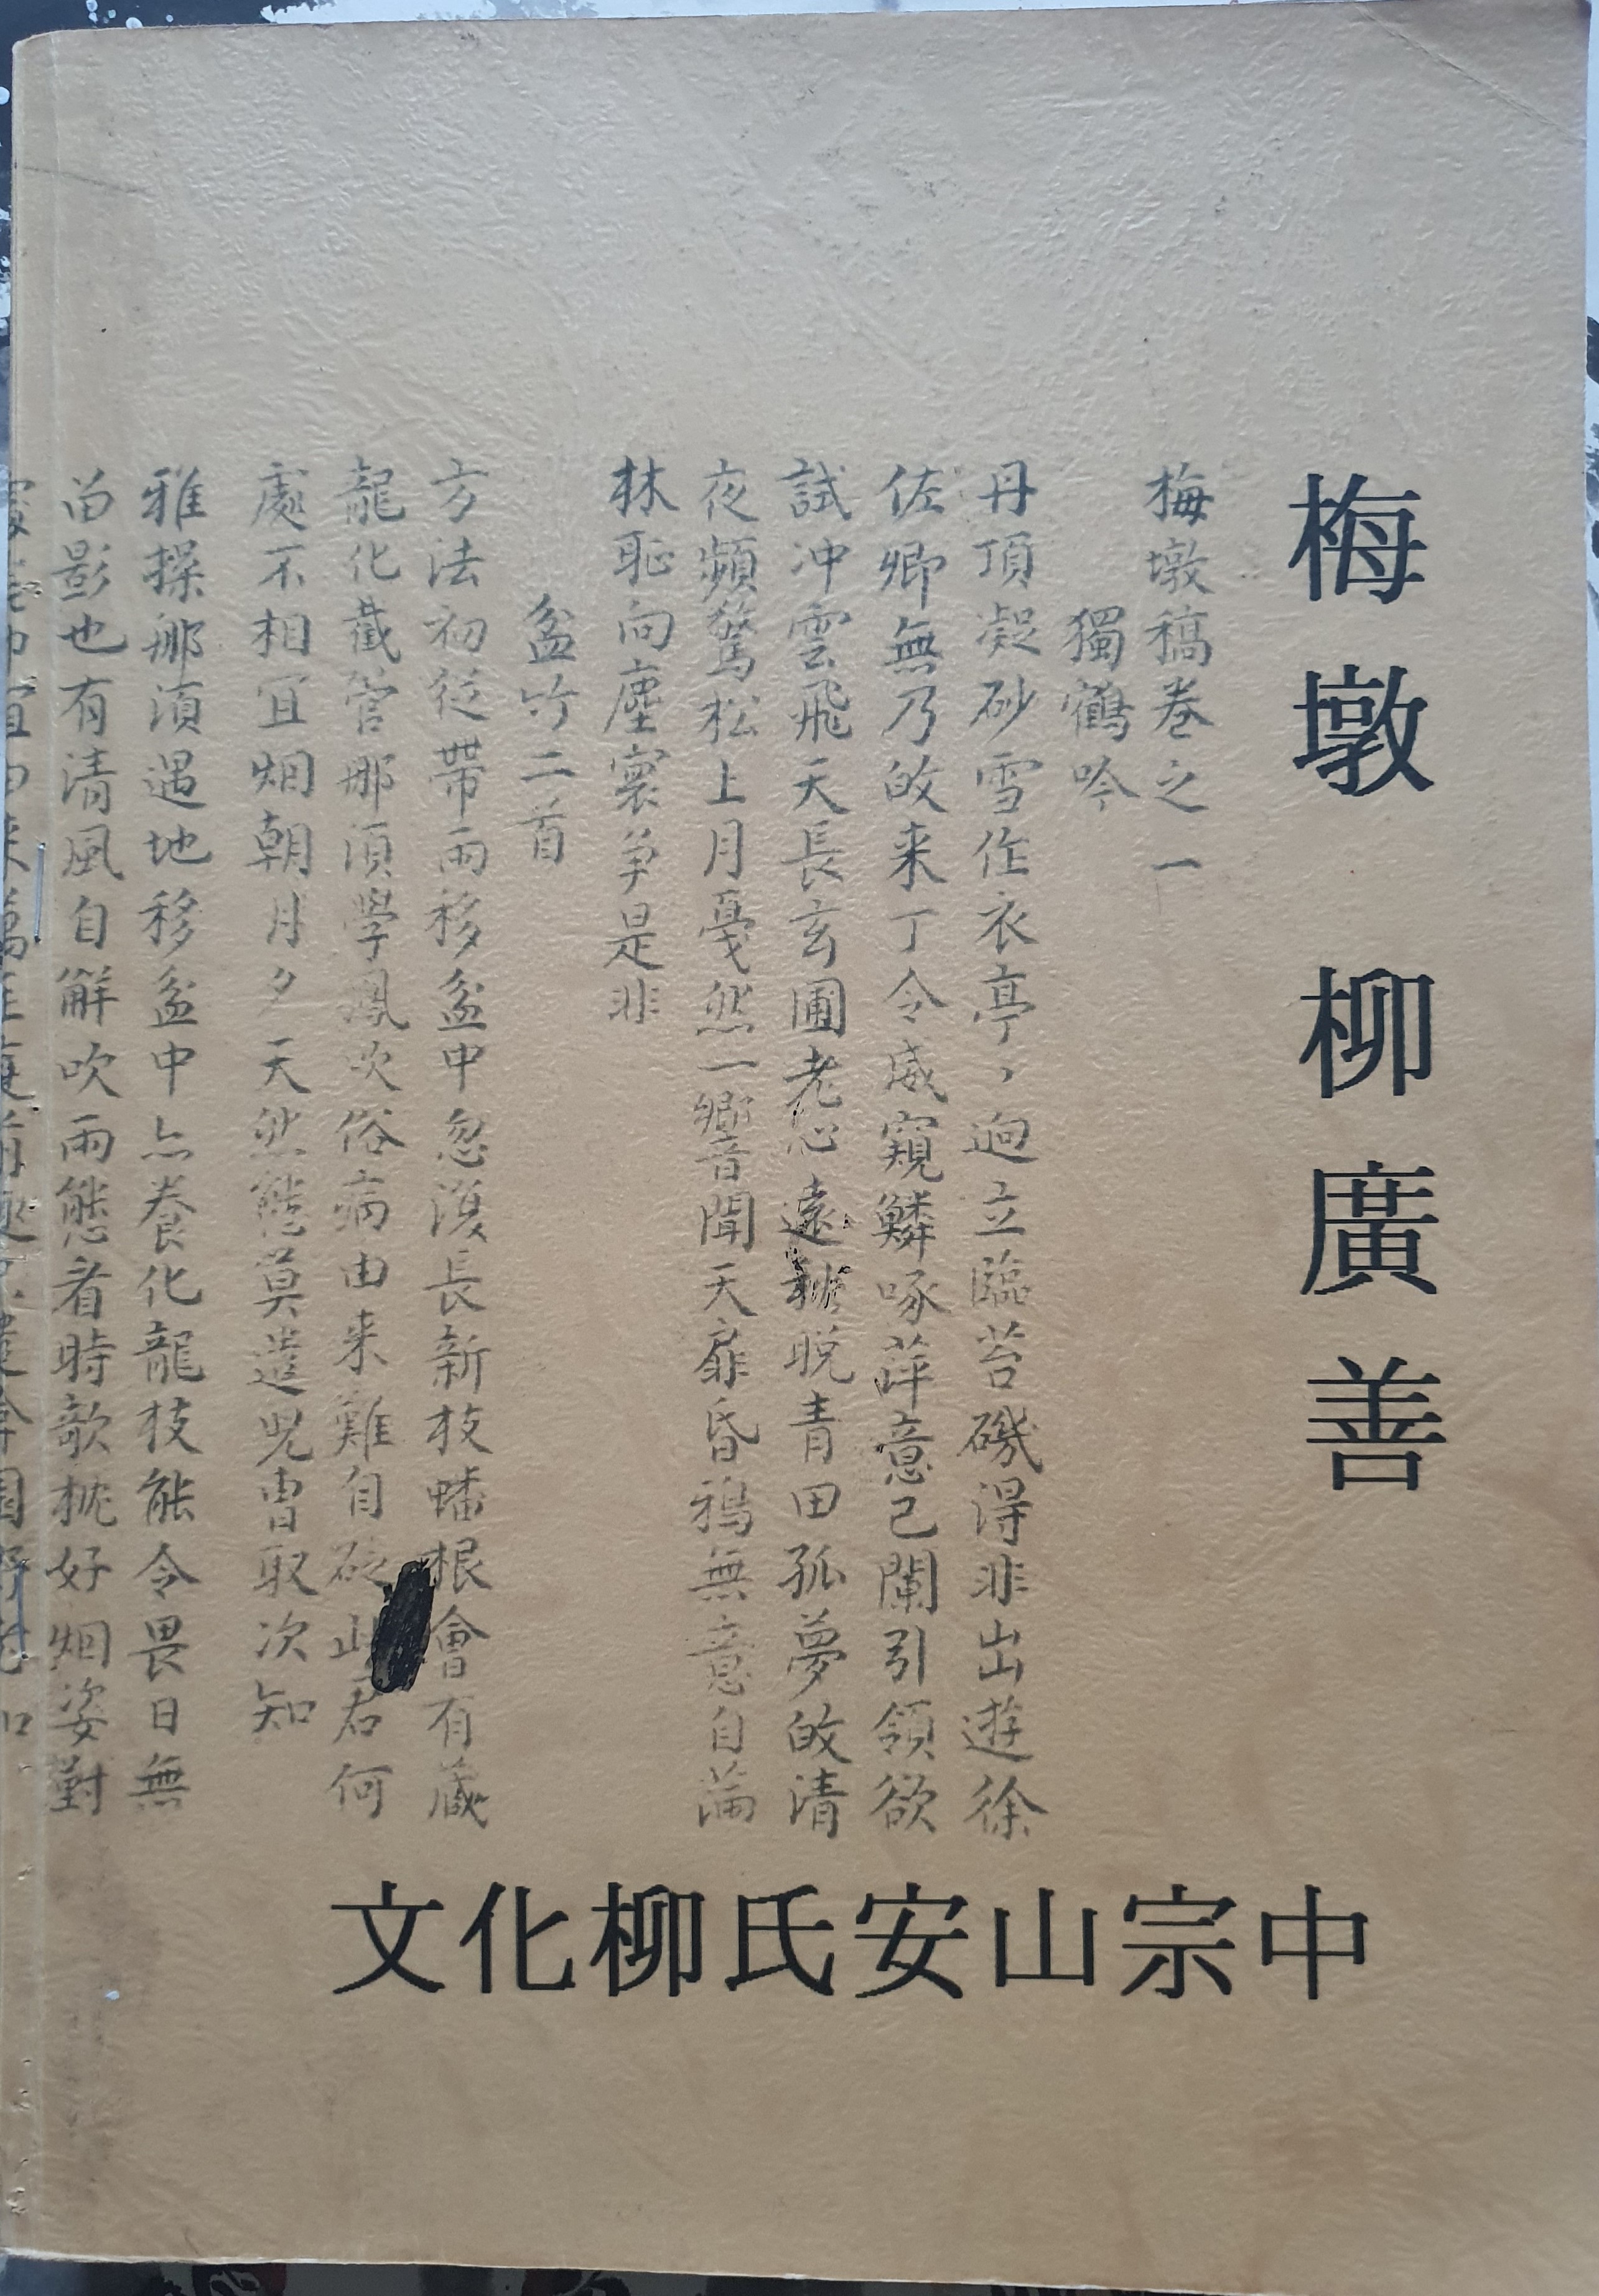 梅墩 柳廣善
梅墩稿卷之一
獨鶴吟
丹頂凝砂雪作衣亭〻逈立臨苔磯得非出遊徐
佐卿無乃故来丁令威窺鱗啄萍意已闌引領欲
試冲雲飛天長玄圃老心遠秋脱青田孤夢故清
夜頻驚松上月戞然一響聞天扉昏鴉無意自論
林恥向塵寰争是非
盆竹二首
方法初從帶雨移盆中忽漫長新枝蟠根會有藏
龍化截管那須學鳳吹俗病由来難自砭此君何
處不相冝烟朝月夕天然態莫遣兒曹取次知
雅操那須遇地移盆中亦養化龍枝能令畏日無
留影也有清風自解吹雨態看時欹枕好烟姿對
文化柳氏安山宗中